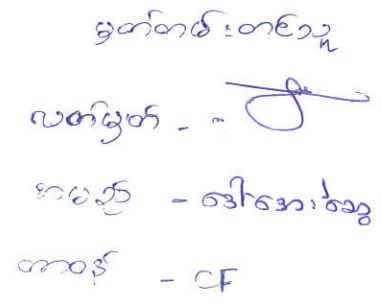 မှတ်တမ်းတင်သူ
လက်မှတ် - 
အမည် - ဒေါ်အေးဆွေ
တာဝန် - CF